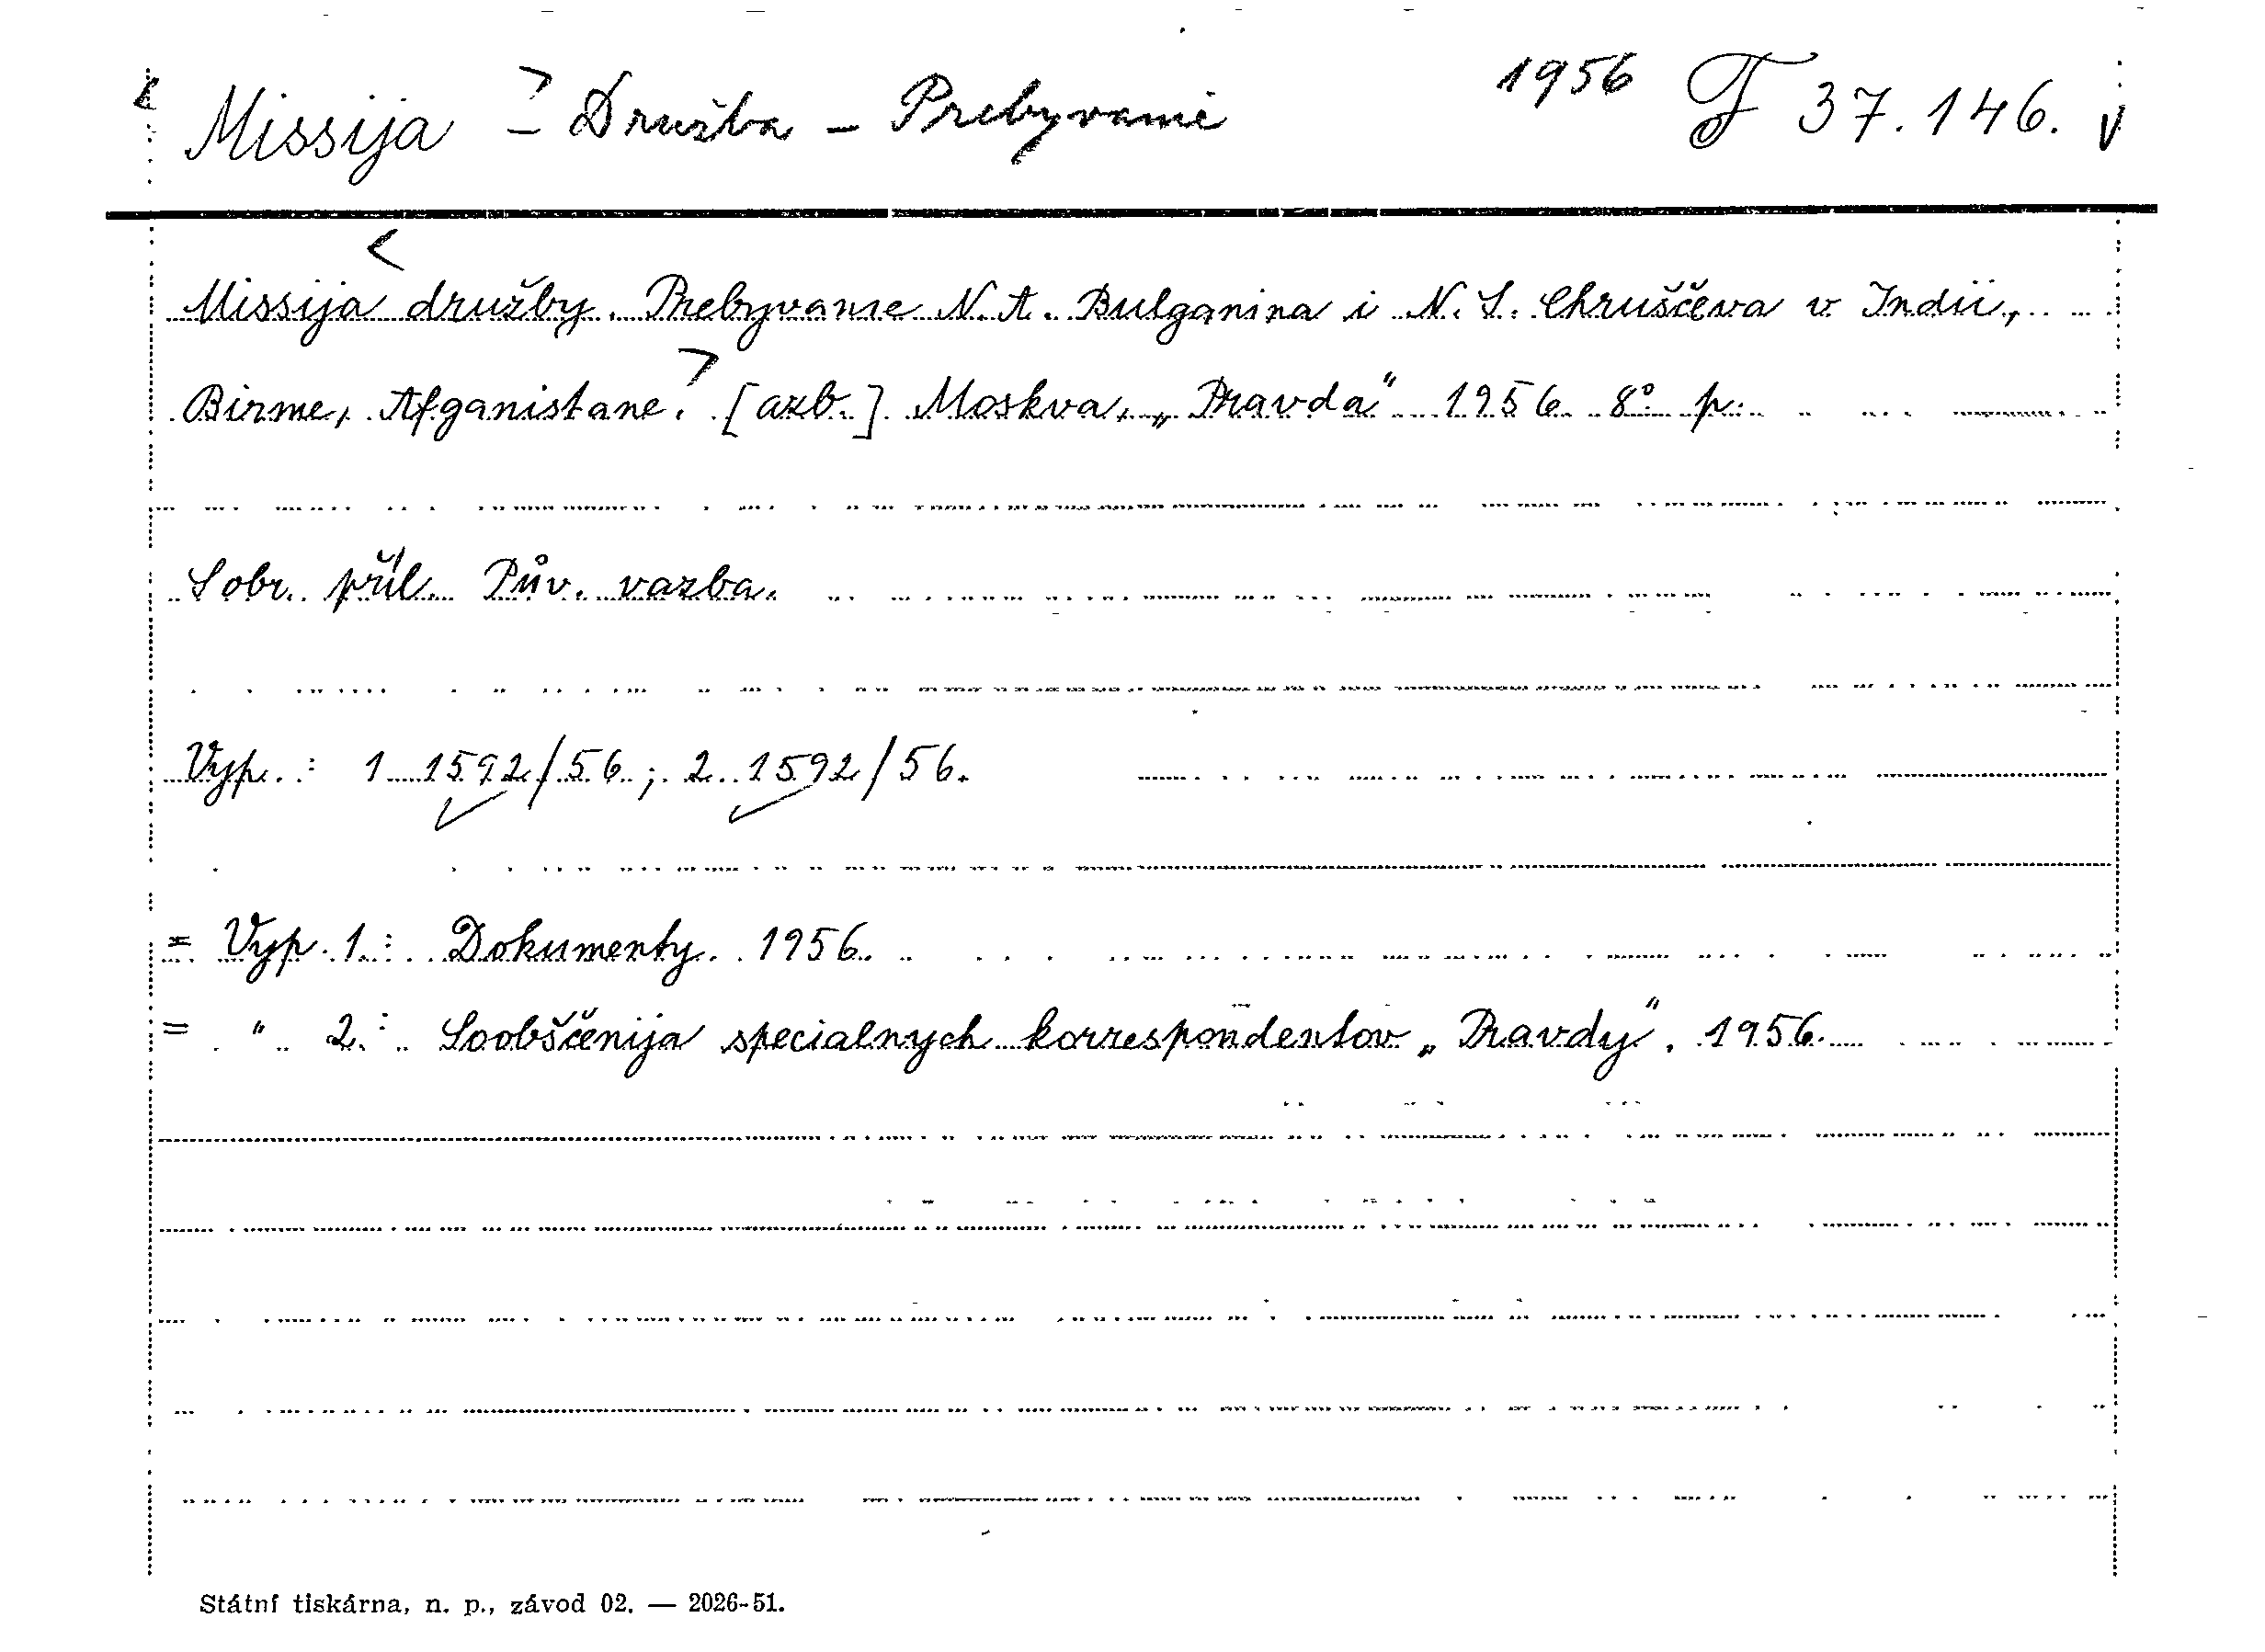 < Missija > - Družba - Prebyvanie 1956 F 37.146. v
< Missija družby. Prebyvanie N. A. Bulganina i N. S. Chruščeva v Indii,
Birme, Afganistane. > [azb.] Moskva, „Pravda" 1956 8° p.
Sobr. příl. Pův. vazba.
Vyp.: 1 1592/56 ; 2 1592/56.
= Vyp. 1.: Dokumenty. 1956.
= " 2.: Soobščenija specialnych korrespondentov „Pravdy". 1956.
Státní tiskárna, n. p., závod 02. — 2026-51.